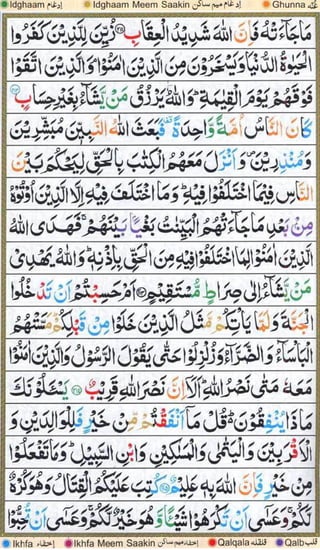 Idghaam ادغام Idghaam Meem Saakin ادغام میم ساکن Ghunna غنه
مَا جَآءَتْهُ فَاِنَّ اللّٰهَ شَدِيْدُ الْعِقَابِ ۝۲۱۱ زُيِّنَ لِلَّذِيْنَ كَفَرُوا
الْحَيٰوةُ الدُّنْيَا وَيَسْخَرُوْنَ مِنَ الَّذِيْنَ اٰمَنُوْا ۘ وَالَّذِيْنَ اتَّقَوْا
فَوْقَهُمْ يَوْمَ الْقِيٰمَةِ ؕ وَاللّٰهُ يَرْزُقُ مَنْ يَّشَآءُ بِغَيْرِ حِسَابٍ ۝۲۱۲
كَانَ النَّاسُ اُمَّةً وَّاحِدَةً ۫ فَبَعَثَ اللّٰهُ النَّبِيّٖنَ مُبَشِّرِيْنَ
وَمُنْذِرِيْنَ ۪ وَاَنْزَلَ مَعَهُمُ الْكِتٰبَ بِالْحَقِّ لِيَحْكُمَ بَيْنَ
النَّاسِ فِيْمَا اخْتَلَفُوْا فِيْهِ ؕ وَمَا اخْتَلَفَ فِيْهِ اِلَّا الَّذِيْنَ اُوْتُوْهُ
مِنْۢ بَعْدِ مَا جَآءَتْهُمُ الْبَيِّنٰتُ بَغْيًاۢ بَيْنَهُمْ ۚ فَهَدَى اللّٰهُ
الَّذِيْنَ اٰمَنُوْا لِمَا اخْتَلَفُوْا فِيْهِ مِنَ الْحَقِّ بِاِذْنِهٖ ؕ وَاللّٰهُ يَهْدِيْ
مَنْ يَّشَآءُ اِلٰى صِرَاطٍ مُّسْتَقِيْمٍ ۝۲۱۳ اَمْ حَسِبْتُمْ اَنْ تَدْخُلُوا
الْجَنَّةَ وَلَمَّا يَاْتِكُمْ مَّثَلُ الَّذِيْنَ خَلَوْا مِنْ قَبْلِكُمْ ؕ مَسَّتْهُمُ
الْبَاْسَآءُ وَالضَّرَّآءُ وَزُلْزِلُوْا حَتّٰى يَقُوْلَ الرَّسُوْلُ وَالَّذِيْنَ اٰمَنُوْا
مَعَهٗ مَتٰى نَصْرُ اللّٰهِ ؕ اَلَاۤ اِنَّ نَصْرَ اللّٰهِ قَرِيْبٌ ۝۲۱۴ يَسْـَٔلُوْنَكَ
مَاذَا يُنْفِقُوْنَ ؕ قُلْ مَاۤ اَنْفَقْتُمْ مِّنْ خَيْرٍ فَلِلْوَالِدَيْنِ وَ
الْاَقْرَبِيْنَ وَالْيَتٰمٰى وَالْمَسٰكِيْنِ وَابْنِ السَّبِيْلِ ؕ وَمَا تَفْعَلُوْا
مِنْ خَيْرٍ فَاِنَّ اللّٰهَ بِهٖ عَلِيْمٌ ۝۲۱۵ كُتِبَ عَلَيْكُمُ الْقِتَالُ وَهُوَ كُرْهٌ
لَّكُمْ ۚ وَعَسٰۤى اَنْ تَكْرَهُوْا شَيْـًٔا وَّهُوَ خَيْرٌ لَّكُمْ ۚ وَعَسٰۤى اَنْ تُحِبُّوْا
Ikhfa إخفاء Ikhfa Meem Saakin إخفاء میم ساکن Qalqala قلقله Qalb قلب